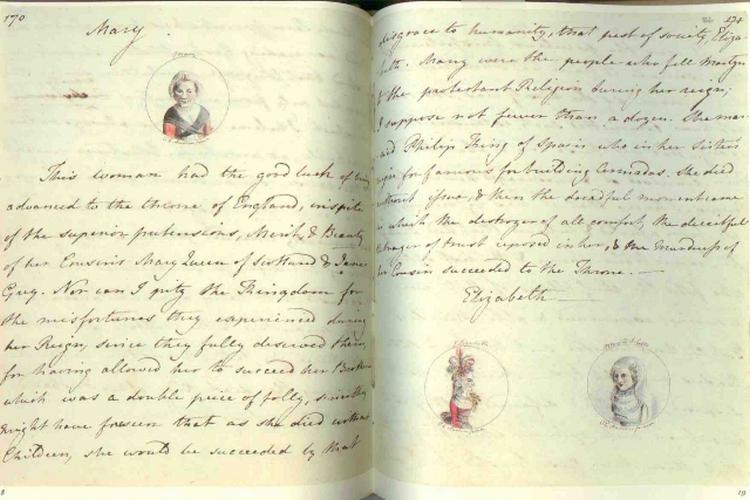 170
Mary
Mary
This woman had the good luck of being
advanced to the throne of England, inspite
of the superior pretensions, Merit, & Beauty
of her Cousins Mary Queen of Scotland & Jane
Grey. Nor can I pity the Kingdom for
the misfortunes they experienced during
her Reign, since they fully deserved them,
for having allowed her to succeed her Brother
which was a double peice of folly, since they
might have foreseen that as she died without
Children, she would be succeeded by that
8
171
disgrace to humanity, that pest of society, Eliza-
beth. Many were the people who fell Martyrs
to the protestant Religion during her reign;
I suppose not fewer than a dozen. She mar-
ried Philip King of Spain who in her Sister's
reign for famous for building Armadas. She died
without issue, & then the dreadful moment came
in which the destroyer of all comfort, the deceitful
Betrayer of trust reposed in her, & the Murderess of
her Cousin succeeded to the Throne. —
Elizabeth —
Elizabeth
Mary Q of Scots
19